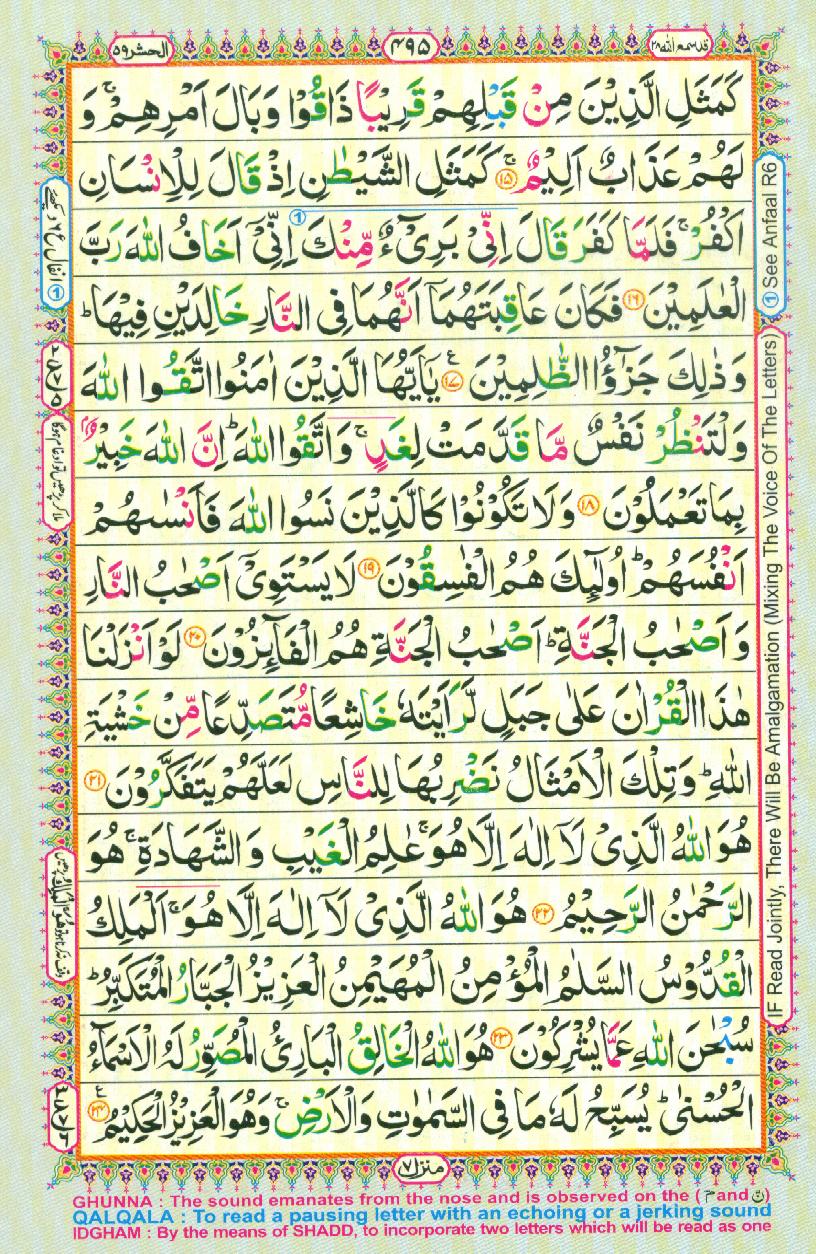 قد سمع الله ٢٨
٤٩٥
الحشر ٥٩
كَمَثَلِ الَّذِيْنَ مِنْ قَبْلِهِمْ قَرِيْبًا ذَاقُوْا وَبَالَ اَمْرِهِمْ ۚ وَ
لَهُمْ عَذَابٌ اَلِيْمٌ ۚ ﴿١٥﴾ كَمَثَلِ الشَّيْطٰنِ اِذْ قَالَ لِلْاِنْسَانِ
اكْفُرْ ۚ فَلَمَّا كَفَرَ قَالَ اِنِّيْ بَرِيْٓءٌ مِّنْكَ اِنِّيْٓ اَخَافُ اللّٰهَ رَبَّ
الْعٰلَمِيْنَ ﴿١٦﴾ فَكَانَ عَاقِبَتَهُمَآ اَنَّهُمَا فِي النَّارِ خَالِدَيْنِ فِيْهَا ؕ
وَ ذٰلِكَ جَزٰٓؤُا الظّٰلِمِيْنَ ﴿١٧﴾ ع يٰٓاَيُّهَا الَّذِيْنَ اٰمَنُوا اتَّقُوا اللّٰهَ
وَلْتَنْظُرْ نَفْسٌ مَّا قَدَّمَتْ لِغَدٍ ۚ وَ اتَّقُوا اللّٰهَ ؕ اِنَّ اللّٰهَ خَبِيْرٌۢ
بِمَا تَعْمَلُوْنَ ﴿١٨﴾ وَلَا تَكُوْنُوْا كَالَّذِيْنَ نَسُوا اللّٰهَ فَاَنْسٰىهُمْ
اَنْفُسَهُمْ ؕ اُولٰٓئِكَ هُمُ الْفٰسِقُوْنَ ﴿١٩﴾ لَا يَسْتَوِيْٓ اَصْحٰبُ النَّارِ
وَ اَصْحٰبُ الْجَنَّةِ ؕ اَصْحٰبُ الْجَنَّةِ هُمُ الْفَآئِزُوْنَ ﴿٢٠﴾ لَوْ اَنْزَلْنَا
هٰذَا الْقُرْاٰنَ عَلٰى جَبَلٍ لَّرَاَيْتَهٗ خَاشِعًا مُّتَصَدِّعًا مِّنْ خَشْيَةِ
اللّٰهِ ؕ وَتِلْكَ الْاَمْثَالُ نَضْرِبُهَا لِلنَّاسِ لَعَلَّهُمْ يَتَفَكَّرُوْنَ ﴿٢١﴾
هُوَ اللّٰهُ الَّذِيْ لَآ اِلٰهَ اِلَّا هُوَ ۚ عٰلِمُ الْغَيْبِ وَ الشَّهَادَةِ ۚ هُوَ
الرَّحْمٰنُ الرَّحِيْمُ ﴿٢٢﴾ هُوَ اللّٰهُ الَّذِيْ لَآ اِلٰهَ اِلَّا هُوَ ۚ اَلْمَلِكُ
الْقُدُّوْسُ السَّلٰمُ الْمُؤْمِنُ الْمُهَيْمِنُ الْعَزِيْزُ الْجَبَّارُ الْمُتَكَبِّرُ ؕ
سُبْحٰنَ اللّٰهِ عَمَّا يُشْرِكُوْنَ ﴿٢٣﴾ هُوَ اللّٰهُ الْخَالِقُ الْبَارِئُ الْمُصَوِّرُ لَهُ الْاَسْمَآءُ
الْحُسْنٰى ؕ يُسَبِّحُ لَهٗ مَا فِي السَّمٰوٰتِ وَالْاَرْضِ ۚ وَهُوَ الْعَزِيْزُ الْحَكِيْمُ ﴿٢٤﴾ ع
① See Anfaal R6
IF Read Jointly, There Will Be Amalgamation (Mixing The Voice Of The Letters)
منزل ٧
GHUNNA : The sound emanates from the nose and is observed on the (مّ and نّ)
QALQALA : To read a pausing letter with an echoing or a jerking sound
IDGHAM : By the means of SHADD, to incorporate two letters which will be read as one